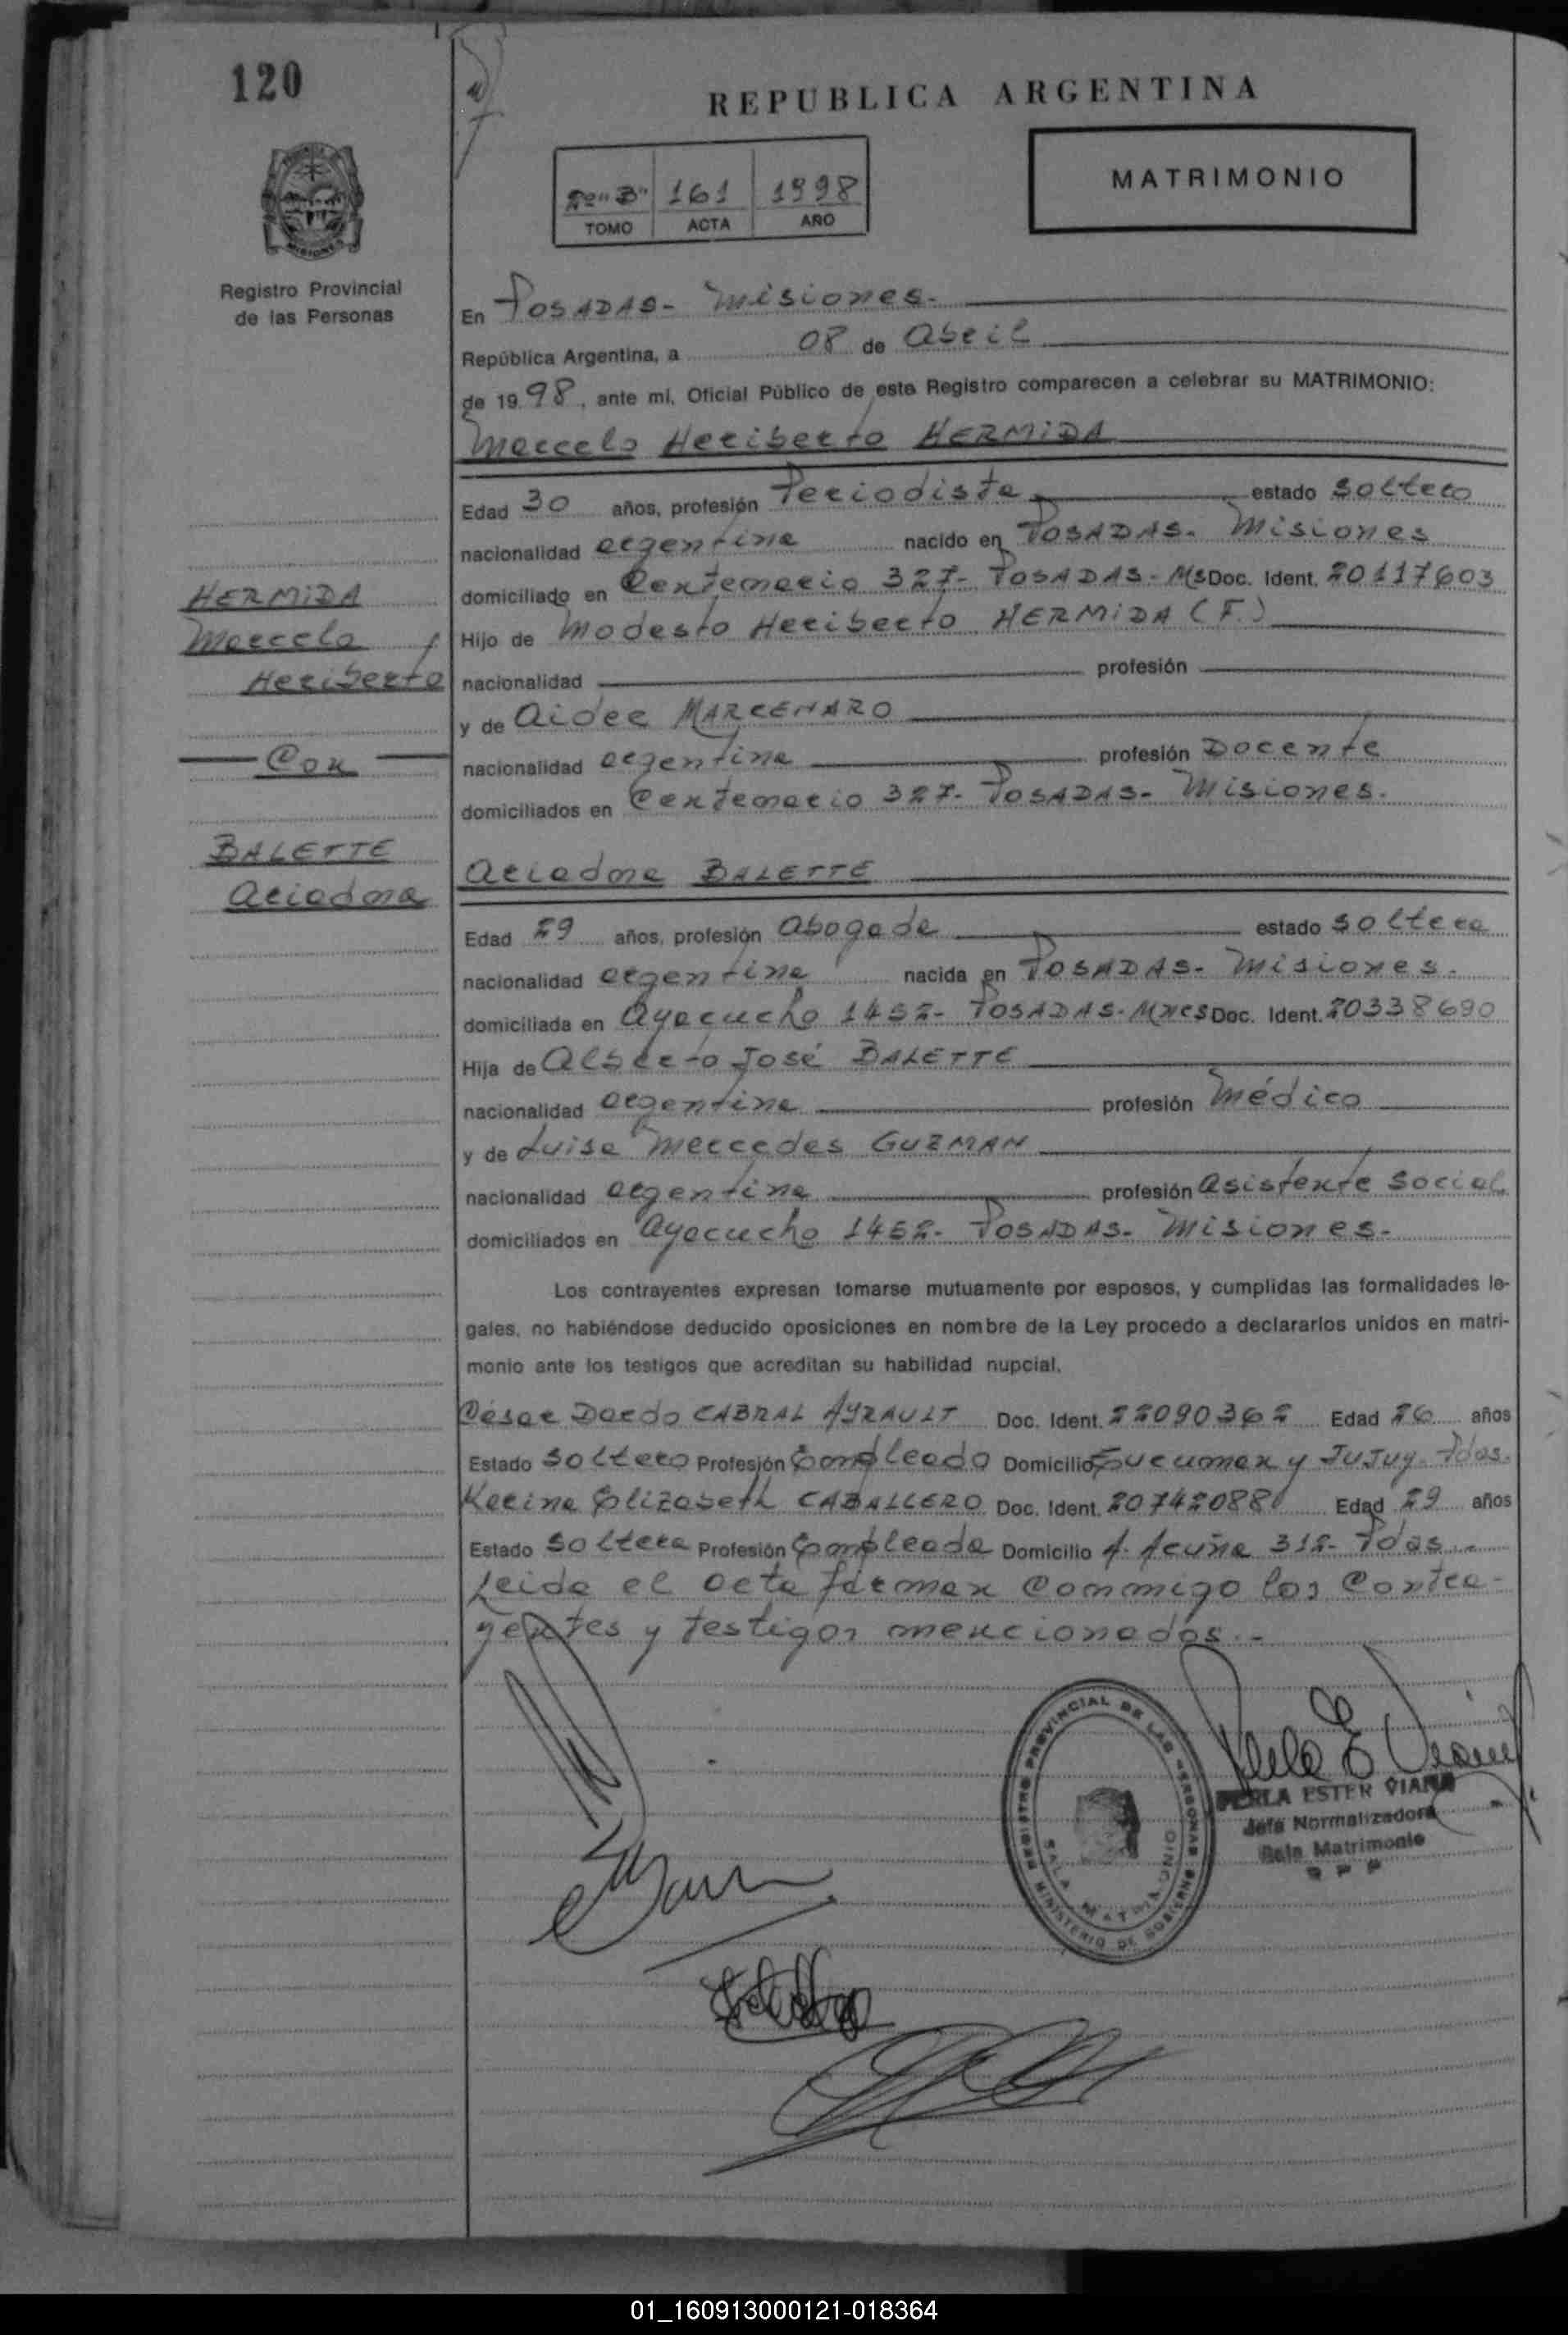 120
REPUBLICA ARGENTINA
2º "B" 161 1998
TOMO ACTA AÑO
MATRIMONIO
Registro Provincial
de las Personas
En POSADAS- Misiones.
República Argentina, a 08 de Abril
de 1998, ante mí, Oficial Público de este Registro comparecen a celebrar su MATRIMONIO:
Marcelo Heriberto HERMIDA
Edad 30 años, profesión Periodista estado soltero
nacionalidad argentina nacido en POSADAS- Misiones
domiciliado en Centenario 327- POSADAS- Ms Doc. Ident. 20117603
Hijo de Modesto Heriberto HERMIDA (F.)
nacionalidad profesión
y de Aidee MARCENARO
nacionalidad argentina profesión Docente
domiciliados en Centenario 327- POSADAS- Misiones.
HERMIDA
Marcelo
Heriberto
Con
BALETTE
Ariadna
Ariadna BALETTE
Edad 29 años, profesión Abogada estado soltera
nacionalidad argentina nacida en POSADAS- Misiones.
domiciliada en Ayacucho 1452- POSADAS- Mnes Doc. Ident. 20338690
Hija de Alberto José BALETTE
nacionalidad argentina profesión Médico
y de Luisa Mercedes GUZMAN
nacionalidad argentina profesión Asistente Social
domiciliados en Ayacucho 1452- POSADAS- Misiones-
Los contrayentes expresan tomarse mutuamente por esposos, y cumplidas las formalidades le-
gales, no habiéndose deducido oposiciones en nombre de la Ley procedo a declararlos unidos en matri-
monio ante los testigos que acreditan su habilidad nupcial.
César Dardo CABRAL AYRAULT Doc. Ident. 22090362 Edad 26 años
Estado soltero Profesión Empleado Domicilio Tucuman y Jujuy- Pdas.
Karina Elizabeth CABALLERO Doc. Ident. 20742088 Edad 29 años
Estado soltera Profesión Empleada Domicilio A. Acuña 312- Pdas.-
Leida el acta firman conmigo los contra-
yentes y testigos mencionados.-
REGISTRO PROVINCIAL DE LAS PERSONAS
SALA MATRIMONIO
MINISTERIO DE GOBIERNO
PERLA ESTER VIANA
Jefa Normalizadora
Sala Matrimonio
01_160913000121-018364